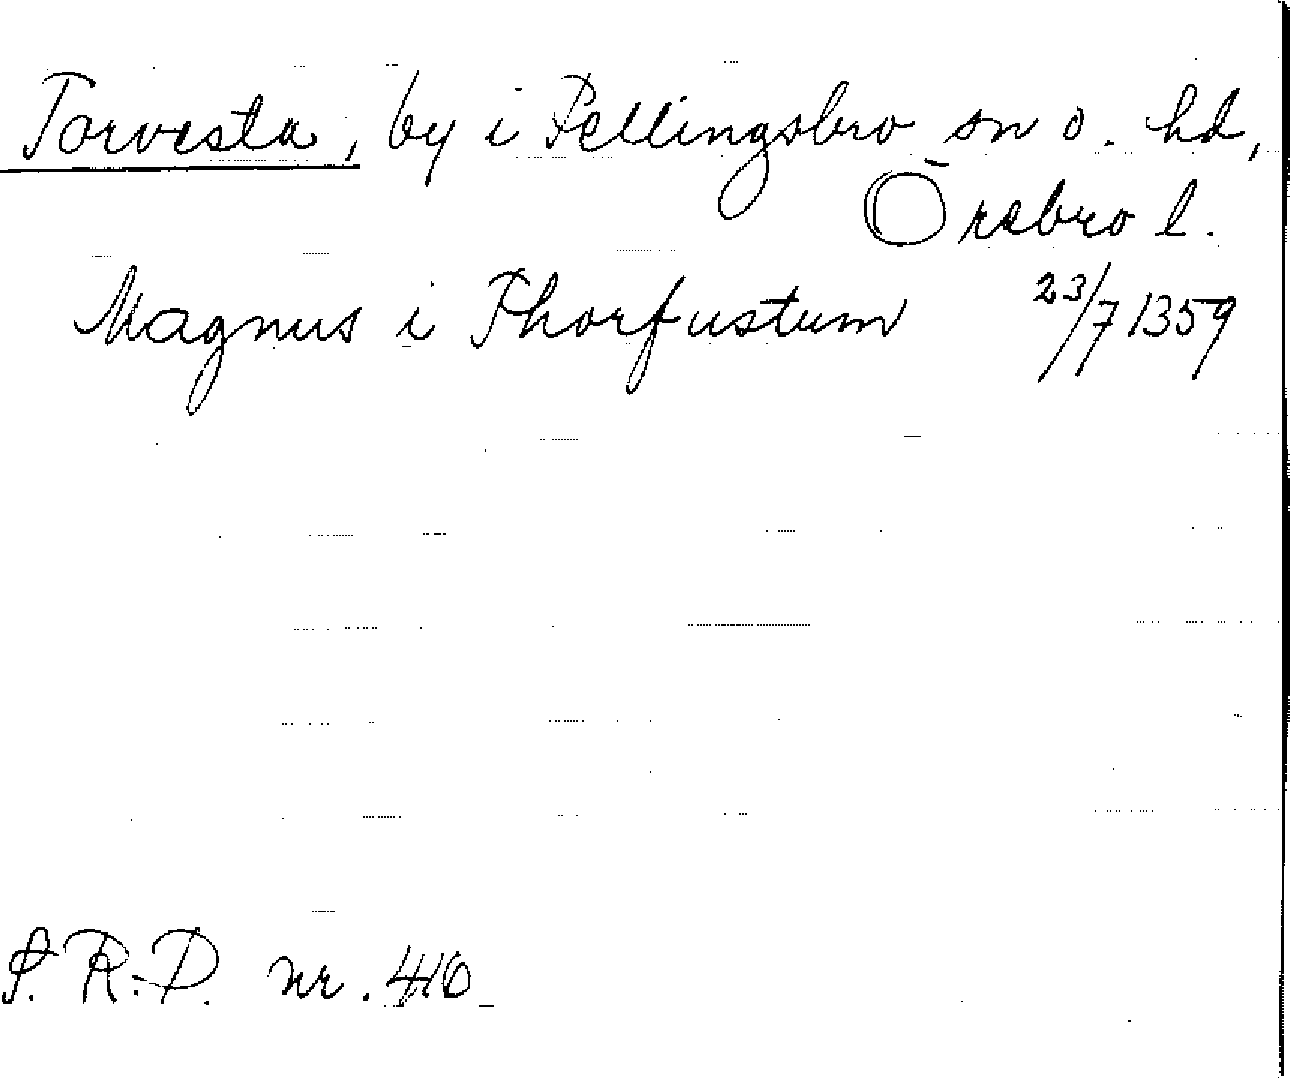 Torvesta, by i Fellingsbro sn o. hd,
Örebro l.
Magnus i Thorfustum 23/7 1359
S. R.-P. nr. 410